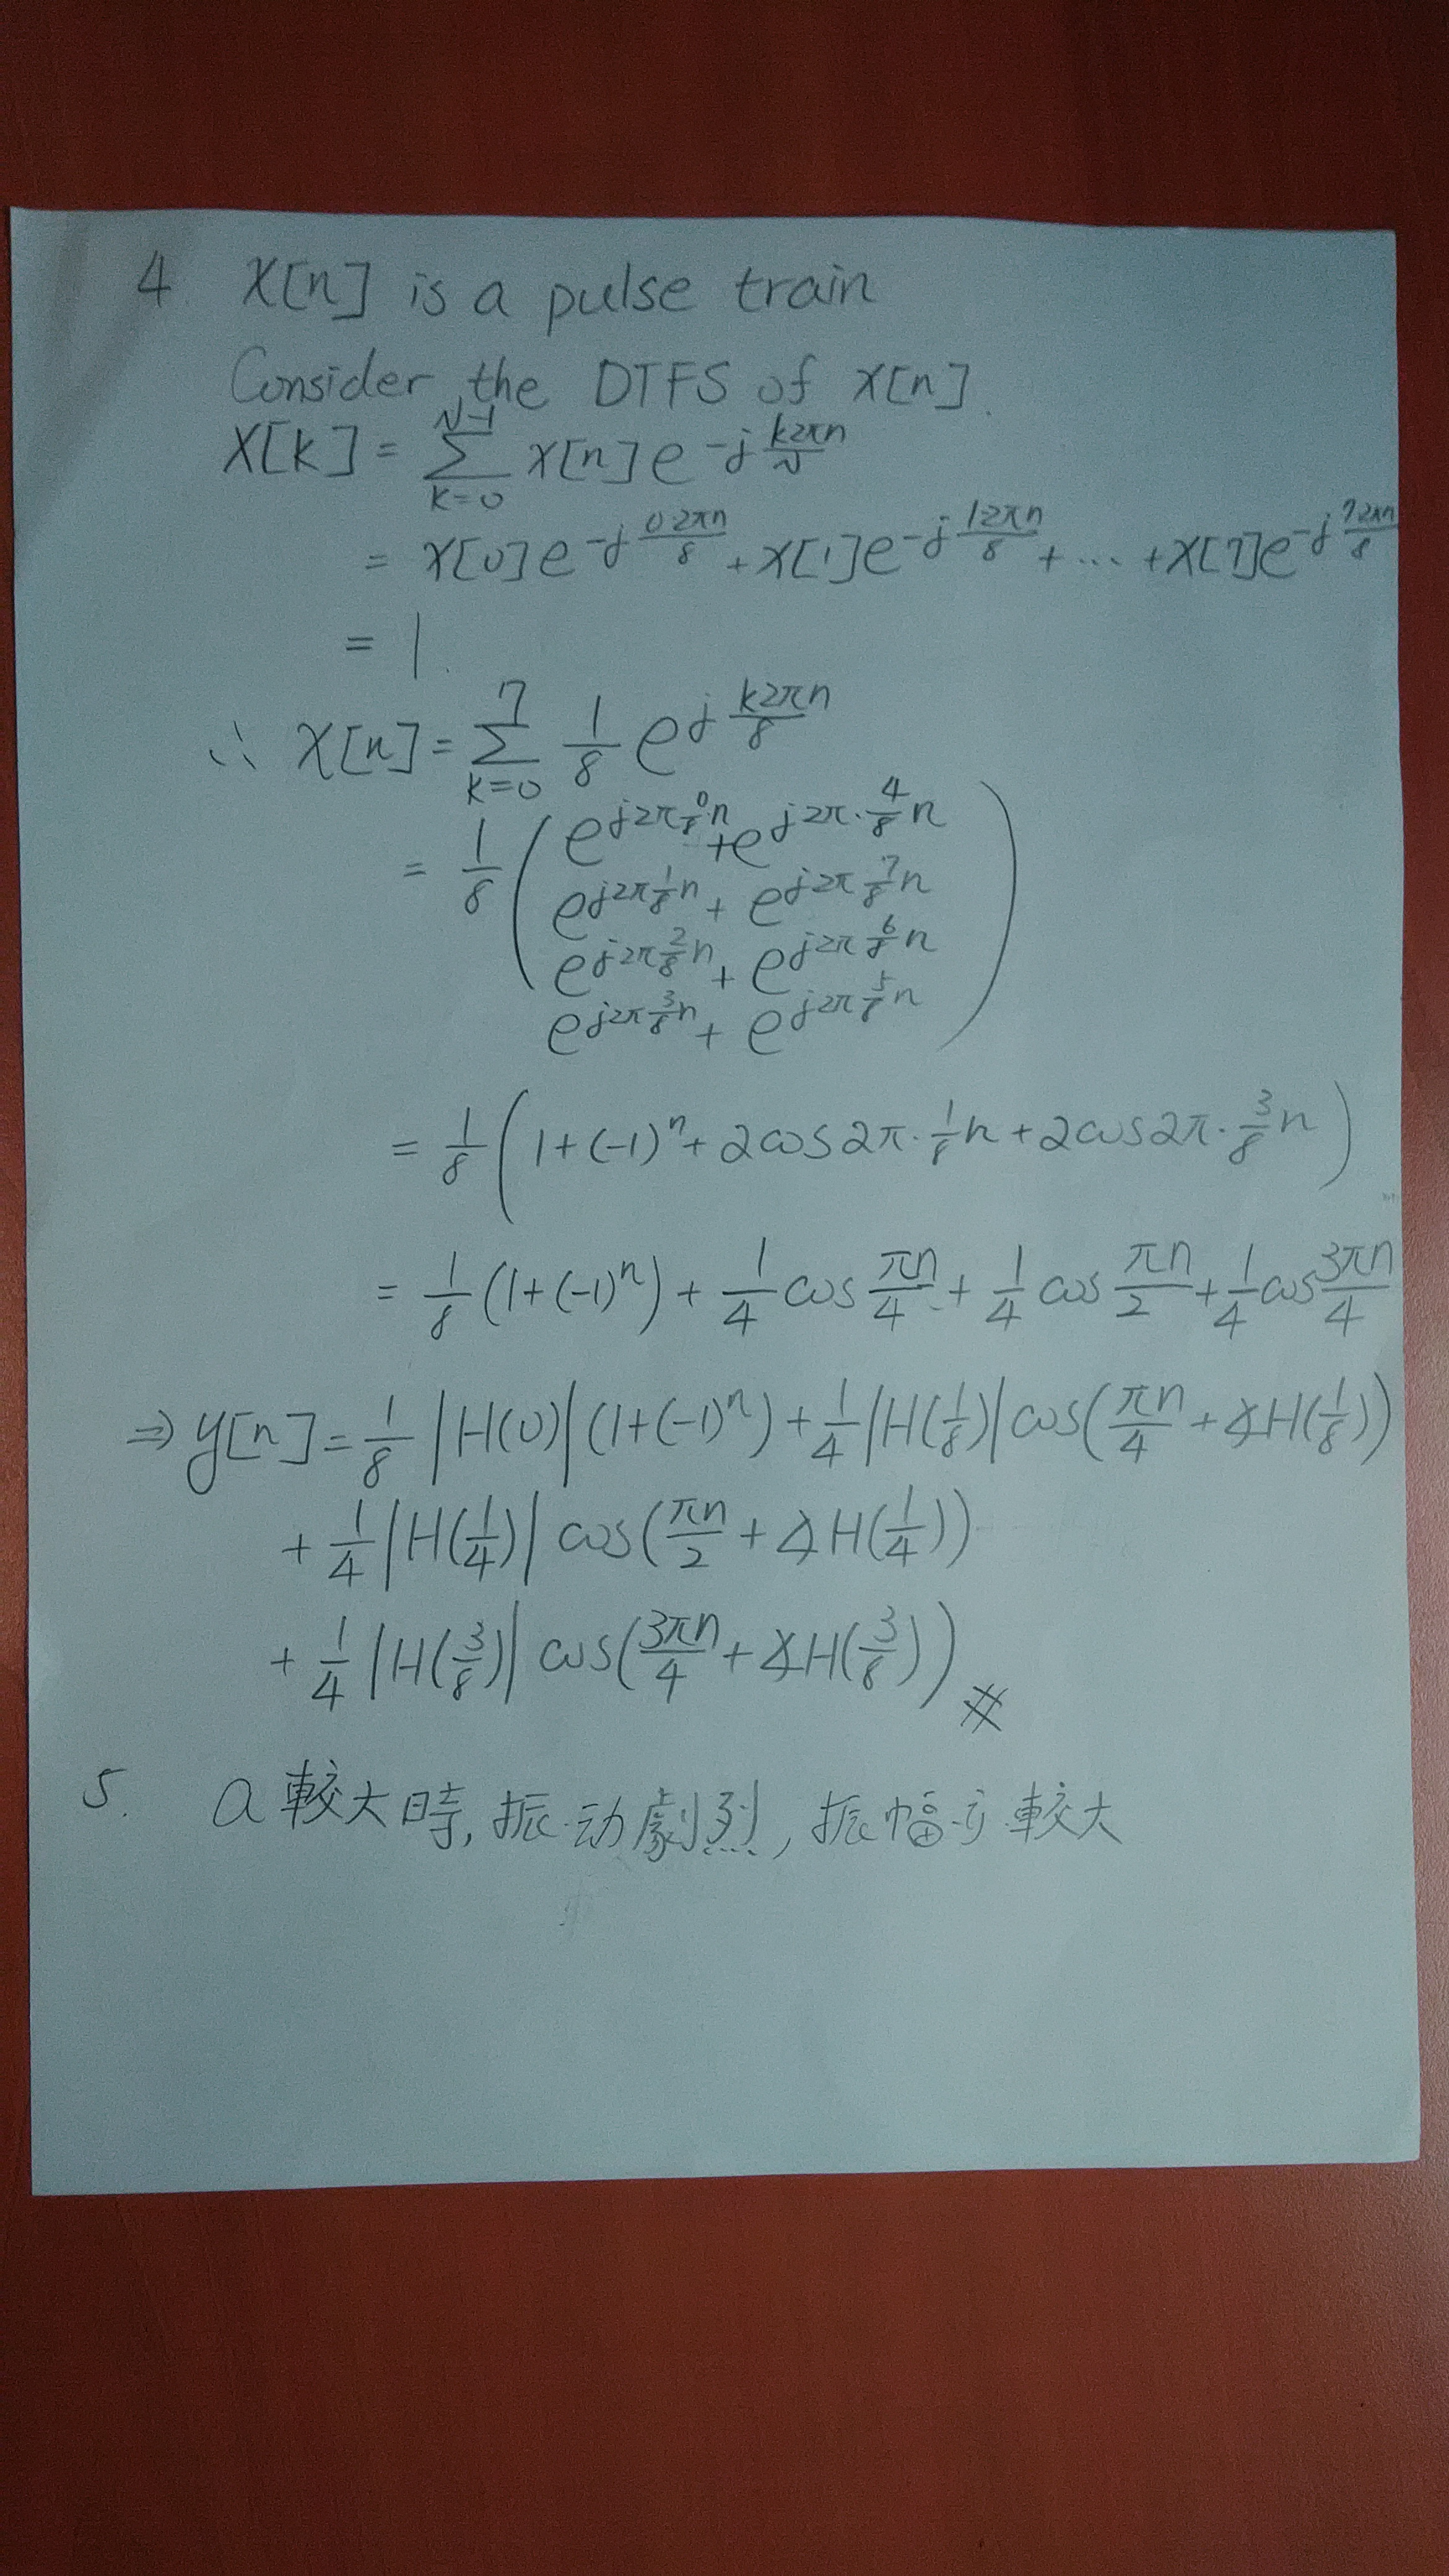 4. X[n] is a pulse train
Consider the DTFS of X[n].
X[k] = \sum_{k=0}^{N-1} x[n] e^{-j\frac{k2πn}{N}}
= x[0]e^{-j\frac{0·2πn}{8}} + x[1]e^{-j\frac{1·2πn}{8}} + ... + x[7]e^{-j\frac{7·2πn}{8}}
= 1.
∴ x[n] = \sum_{k=0}^{7} \frac{1}{8} e^{j\frac{k2πn}{8}}
= \frac{1}{8} ( e^{j2π\frac{0}{8}n} + e^{j2π·\frac{4}{8}n}
e^{j2π\frac{1}{8}n} + e^{j2π\frac{7}{8}n}
e^{j2π\frac{2}{8}n} + e^{j2π\frac{6}{8}n}
e^{j2π\frac{3}{8}n} + e^{j2π\frac{5}{8}n} )
= \frac{1}{8} ( 1 + (-1)^n + 2cos2π·\frac{1}{8}n + 2cos2π·\frac{3}{8}n )
= \frac{1}{8} (1+(-1)^n) + \frac{1}{4} cos\frac{πn}{4} + \frac{1}{4} cos\frac{πn}{2} + \frac{1}{4} cos\frac{3πn}{4}
⇒ y[n] = \frac{1}{8} |H(0)| (1+(-1)^n) + \frac{1}{4} |H(\frac{1}{8})| cos(\frac{πn}{4} + ∡H(\frac{1}{8}))
+ \frac{1}{4} |H(\frac{1}{4})| cos(\frac{πn}{2} + ∡H(\frac{1}{4}))
+ \frac{1}{4} |H(\frac{3}{8})| cos(\frac{3πn}{4} + ∡H(\frac{3}{8})) #
5. a 較大時, 振动劇烈, 振幅亦較大